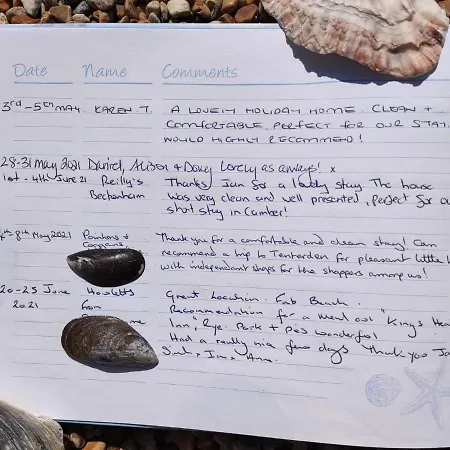 Date Name Comments
3rd - 5th MAY KAREN T. A LOVELY HOLIDAY HOME. CLEAN +
COMFORTABLE. PERFECT FOR OUR STAY.
WOULD HIGHLY RECOMMEND!
28-31 May 2021 Daniel, Alison + Doug Lovely as always! x
1st - 4th June 21 Reilly's Thanks Jan for a lovely stay. The house
Beckenham was very clean and well presented, perfect for a
short stay in Camber!
8th May 2021 Thank you for a comfortable and clean stay! Can
recommend a trip to Tenterden for pleasant little
with independant shops for the shoppers among us!
20-25 June Howletts Great Location. Fab Beach.
2021 from Recommendation for a meal out "Kings Hea
Inn", Rye. Pork + Pies wonderful
Had a really nice few days Thank you Ja